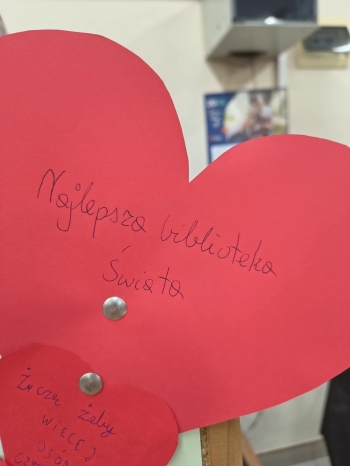 Najlepsza biblioteka
Świata
Życzę żeby
WIĘCEJ
OSÓB